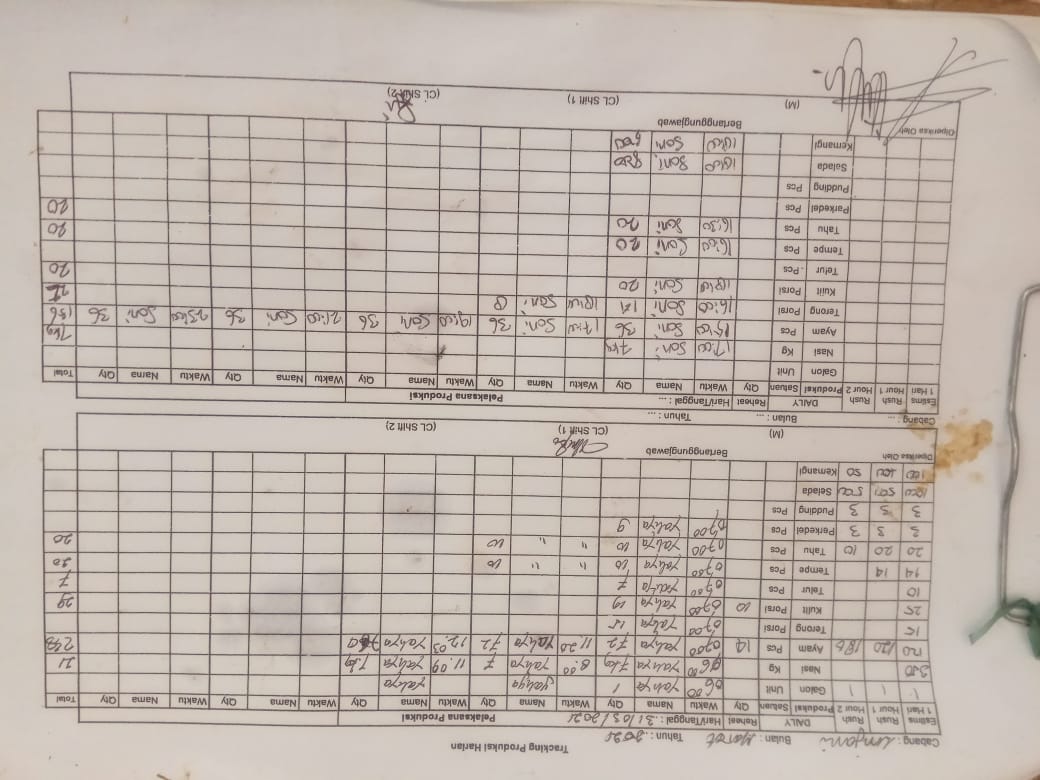 Tracking Produksi Harian
Cabang : Bulan : Maret Tahun : 2021
Estims 1 Hari Rush Hour 1 Rush Hour 2 DAILY Hari/Tanggal : 31/03/2021 Pelaksana Produksi
Produksi Satuan Reheat Qty Waktu Nama Qty Waktu Nama Qty Waktu Nama Qty Waktu Nama Qty Waktu Nama Qty Total
1 1 1 Galon Unit 06.00 Yahya 1 Yahya Yahya
Nasi Kg 06.00 Yahya 7 kg 8.00 Yahya 7 11.09 Yahya 7 kg 21
120 120 Ayam Pcs 14 07.00 Yahya 72 11.20 Yahya 72 12.03 Yahya
15 Terong Porsi 07.00 Yahya 15
25 Kulit Porsi 10 07.00 Yahya 19 29
10 Telur Pcs 07.00 Yahya 7 7
14 14 Tempe Pcs 07.00 Yahya 10 " " 10 20
20 20 10 Tahu Pcs 07.00 Yahya 10 " " 10 20
3 3 3 Perkedel Pcs 07.00 Yahya 9
3 3 3 Pudding Pcs
500 500 Selada
100 100 50 Kemangi
Diperiksa Oleh Bertanggungjawab
(M) (CL Shift 1) (CL Shift 2)
Cabang : ... Bulan : ... Tahun : ...
Estims 1 Hari Rush Hour 1 Rush Hour 2 DAILY Hari/Tanggal : ... Pelaksana Produksi
Produksi Satuan Reheat Qty Waktu Nama Qty Waktu Nama Qty Waktu Nama Qty Waktu Nama Qty Waktu Nama Qty Total
Galon Unit
Nasi Kg 17:00 Soni 7 kg 7 kg
Ayam Pcs 15:00 Soni 36 17:00 Soni 36 19:00 Soni 36 21:00 Soni 36 23:00 Soni 36
Terong Porsi 16:00 Soni 14 18:00 Soni 8
Kulit Porsi 18:00 Soni 20 20
Telur Pcs
Tempe Pcs 16:00 Soni 20 20
Tahu Pcs 16:30 Soni 20 20
Parkedel Pcs
Pudding Pcs
Selada 18:00 Soni
Kemangi 18:00 Soni 500
Diperiksa Oleh Bertanggungjawab
(M) (CL Shift 1) (CL Shift 2)